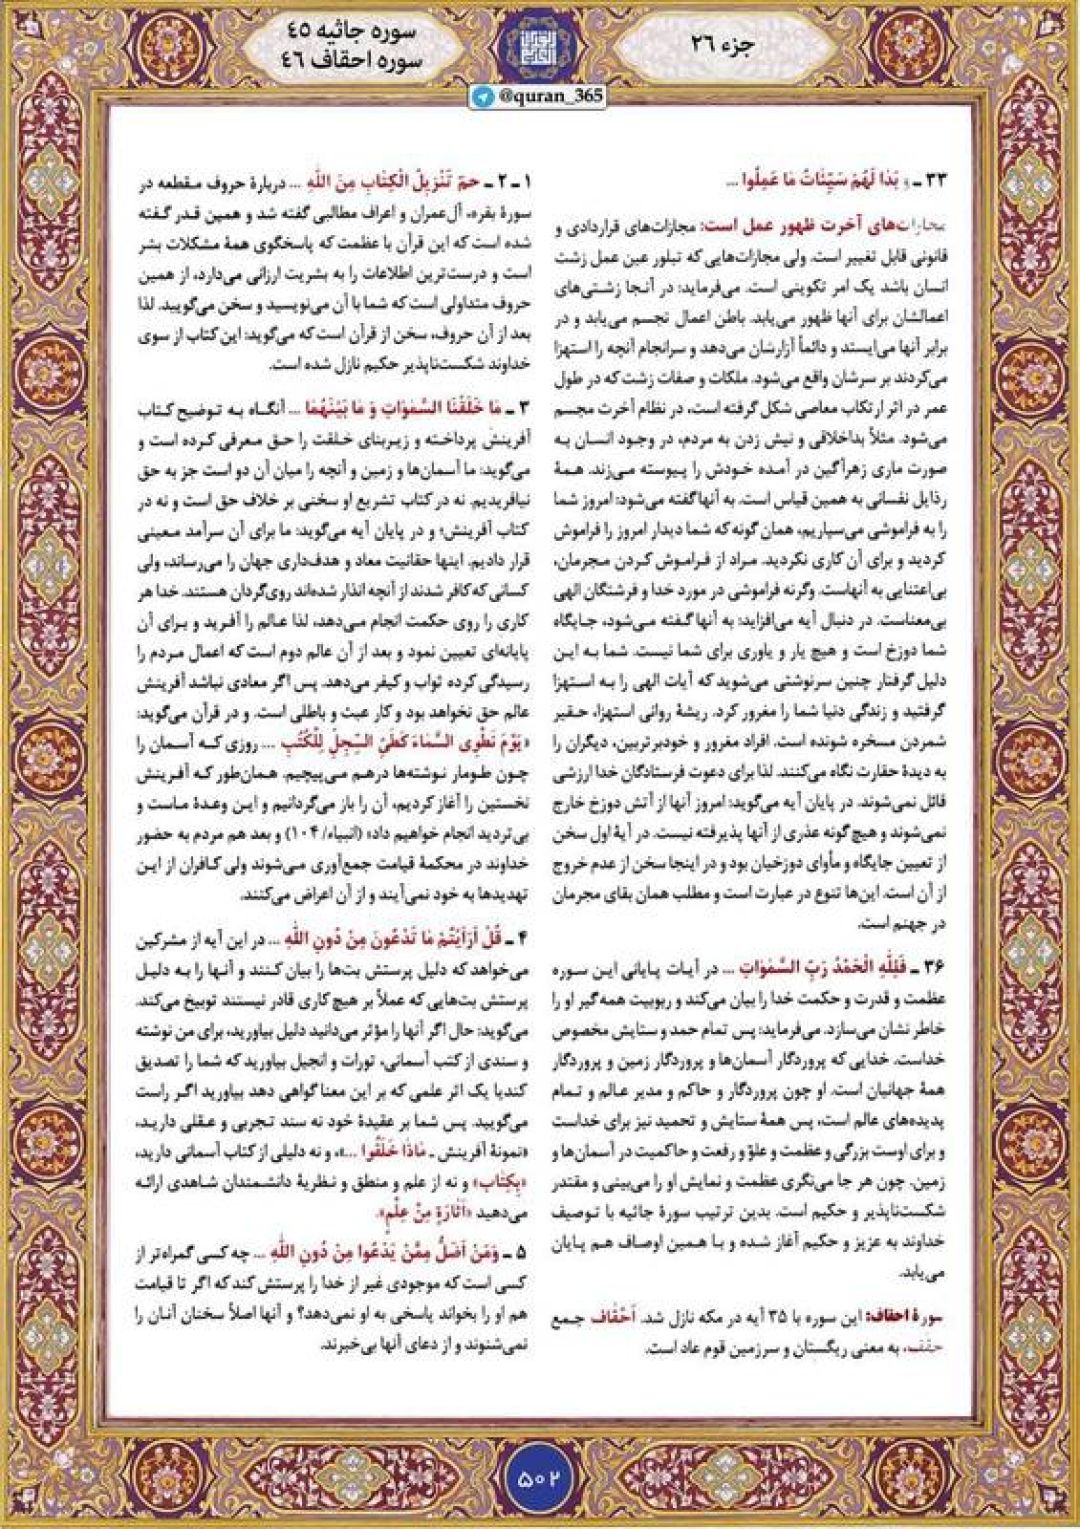 جزء ۲۶
سوره جاثیه ۴۵
سوره احقاف ۴۶
@quran_365
۳۳ ـ وَ بَدٰا لَهُمْ سَیِّئٰاتُ مٰا عَمِلُوا ...
مجازات‌های آخرت ظهور عمل است: مجازات‌های قراردادی و
قانونی قابل تغییر است. ولی مجازات‌هایی که تبلور عین عمل زشت
انسان باشد یک امر تکوینی است. می‌فرماید: در آنجا زشتی‌های
اعمالشان برای آنها ظهور می‌یابد. باطن اعمال تجسم می‌یابد و در
برابر آنها می‌ایستد و دائماً آزارشان می‌دهد و سرانجام آنچه را استهزا
می‌کردند بر سرشان واقع می‌شود. ملکات و صفات زشت که در طول
عمر در اثر ارتکاب معاصی شکل گرفته است، در نظام آخرت مجسم
می‌شود. مثلاً بداخلاقی و نیش زدن به مردم، در وجود انسان به
صورت ماری زهرآگین در آمده خودش را پیوسته می‌زند. همهٔ
رذایل نفسانی به همین قیاس است. به آنها گفته می‌شود: امروز شما
را به فراموشی می‌سپاریم، همان گونه که شما دیدار امروز را فراموش
کردید و برای آن کاری نکردید. مراد از فراموش کردن مجرمان،
بی‌اعتنایی به آنهاست. وگرنه فراموشی در مورد خدا و فرشتگان الهی
بی‌معناست. در دنبال آیه می‌افزاید: به آنها گفته می‌شود، جایگاه
شما دوزخ است و هیچ یار و یاوری برای شما نیست. شما به این
دلیل گرفتار چنین سرنوشتی می‌شوید که آیات الهی را به استهزا
گرفتید و زندگی دنیا شما را مغرور کرد. ریشهٔ روانی استهزا، حقیر
شمردن مسخره شونده است. افراد مغرور و خودبرتربین، دیگران را
به دیدهٔ حقارت نگاه می‌کنند. لذا برای دعوت فرستادگان خدا ارزشی
قائل نمی‌شوند. در پایان آیه می‌گوید: امروز آنها از آتش دوزخ خارج
نمی‌شوند و هیچ گونه عذری از آنها پذیرفته نیست. در آیهٔ اول سخن
از تعیین جایگاه و مأوای دوزخیان بود و در اینجا سخن از عدم خروج
از آن است. این‌ها تنوع در عبارت است و مطلب همان بقای مجرمان
در جهنم است.
۳۶ ـ فَلِلّٰهِ الْحَمْدُ رَبِّ السَّمٰوٰاتِ ... در آیات پایانی این سوره
عظمت و قدرت و حکمت خدا را بیان می‌کند و ربوبیت همه‌گیر او را
خاطر نشان می‌سازد. می‌فرماید: پس تمام حمد و ستایش مخصوص
خداست. خدایی که پروردگار آسمان‌ها و پروردگار زمین و پروردگار
همهٔ جهانیان است. او چون پروردگار و حاکم و مدیر عالم و تمام
پدیده‌های عالم است، پس همهٔ ستایش و تحمید نیز برای خداست
و برای اوست بزرگی و عظمت و علوّ و رفعت و حاکمیت در آسمان‌ها و
زمین. چون هر جا می‌نگری عظمت و نمایش او را می‌بینی و مقتدر
شکست‌ناپذیر و حکیم است. بدین ترتیب سورهٔ جاثیه با توصیف
خداوند به عزیز و حکیم آغاز شده و با همین اوصاف هم پایان
می‌یابد.
سورهٔ احقاف: این سوره با ۳۵ آیه در مکه نازل شد. اَحْقٰاف جمع
حقف، به معنی ریگستان و سرزمین قوم عاد است.
۱ ـ ۲ ـ حٰمٓ تَنْزِیلُ الْکِتٰابِ مِنَ اللّٰهِ ... دربارهٔ حروف مقطعه در
سورهٔ بقره، آل‌عمران و اعراف مطالبی گفته شد و همین قدر گفته
شده است که این قرآن با عظمت که پاسخگوی همهٔ مشکلات بشر
است و درست‌ترین اطلاعات را به بشریت ارزانی می‌دارد، از همین
حروف متداولی است که شما با آن می‌نویسید و سخن می‌گویید. لذا
بعد از آن حروف، سخن از قرآن است که می‌گوید: این کتاب از سوی
خداوند شکست‌ناپذیر حکیم نازل شده است.
۳ ـ مٰا خَلَقْنَا السَّمٰوٰاتِ وَ مٰا بَیْنَهُمٰا ... آنگاه به توضیح کتاب
آفرینش پرداخته و زیربنای خلقت را حق معرفی کرده است و
می‌گوید: ما آسمان‌ها و زمین و آنچه را میان آن دو است جز به حق
نیافریدیم. نه در کتاب تشریع او سخنی بر خلاف حق است و نه در
کتاب آفرینش؛ و در پایان آیه می‌گوید: ما برای آن سرآمد معینی
قرار دادیم. اینها حقانیت معاد و هدف‌داری جهان را می‌رساند، ولی
کسانی که کافر شدند از آنچه انذار شده‌اند روی‌گردان هستند. خدا هر
کاری را روی حکمت انجام می‌دهد، لذا عالم را آفرید و برای آن
پایانه‌ای تعیین نمود و بعد از آن عالم دوم است که اعمال مردم را
رسیدگی کرده ثواب و کیفر می‌دهد. پس اگر معادی نباشد آفرینش
عالم حق نخواهد بود و کار عبث و باطلی است. و در قرآن می‌گوید:
«یَوْمَ نَطْوِی السَّمٰاءَ کَطَیِّ السِّجِلِّ لِلْکُتُبِ ... روزی که آسمان را
چون طومار نوشته‌ها درهم می‌پیچیم. همان‌طور که آفرینش
نخستین را آغاز کردیم، آن را باز می‌گردانیم و این وعدهٔ ماست و
بی‌تردید انجام خواهیم داد» (انبیاء/ ۱۰۴) و بعد هم مردم به حضور
خداوند در محکمهٔ قیامت جمع‌آوری می‌شوند ولی کافران از این
تهدیدها به خود نمی‌آیند و از آن اعراض می‌کنند.
۴ ـ قُلْ اَرَاَیْتُمْ مٰا تَدْعُونَ مِنْ دُونِ اللّٰهِ ... در این آیه از مشرکین
می‌خواهد که دلیل پرستش بت‌ها را بیان کنند و آنها را به دلیل
پرستش بت‌هایی که عملاً بر هیچ کاری قادر نیستند توبیخ می‌کند.
می‌گوید: حال اگر آنها را مؤثر می‌دانید دلیل بیاورید، برای من نوشته
و سندی از کتب آسمانی، تورات و انجیل بیاورید که شما را تصدیق
کند یا یک اثر علمی که بر این معنا گواهی دهد بیاورید اگر راست
می‌گویید. پس شما بر عقیدهٔ خود نه سند تجربی و عقلی دارید،
«نمونهٔ آفرینش ـ مٰاذٰا خَلَقُوا ...»، و نه دلیلی از کتاب آسمانی دارید،
«بِکِتٰابٍ» و نه از علم و منطق و نظریهٔ دانشمندان شاهدی ارائه
می‌دهید «اَثٰارَةٍ مِنْ عِلْمٍ».
۵ ـ وَمَنْ اَضَلُّ مِمَّنْ یَدْعُوا مِنْ دُونِ اللّٰهِ ... چه کسی گمراه‌تر از
کسی است که موجودی غیر از خدا را پرستش کند که اگر تا قیامت
هم او را بخواند پاسخی به او نمی‌دهد؟ و آنها اصلاً سخنان آنان را
نمی‌شنوند و از دعای آنها بی‌خبرند.
۵۰۲